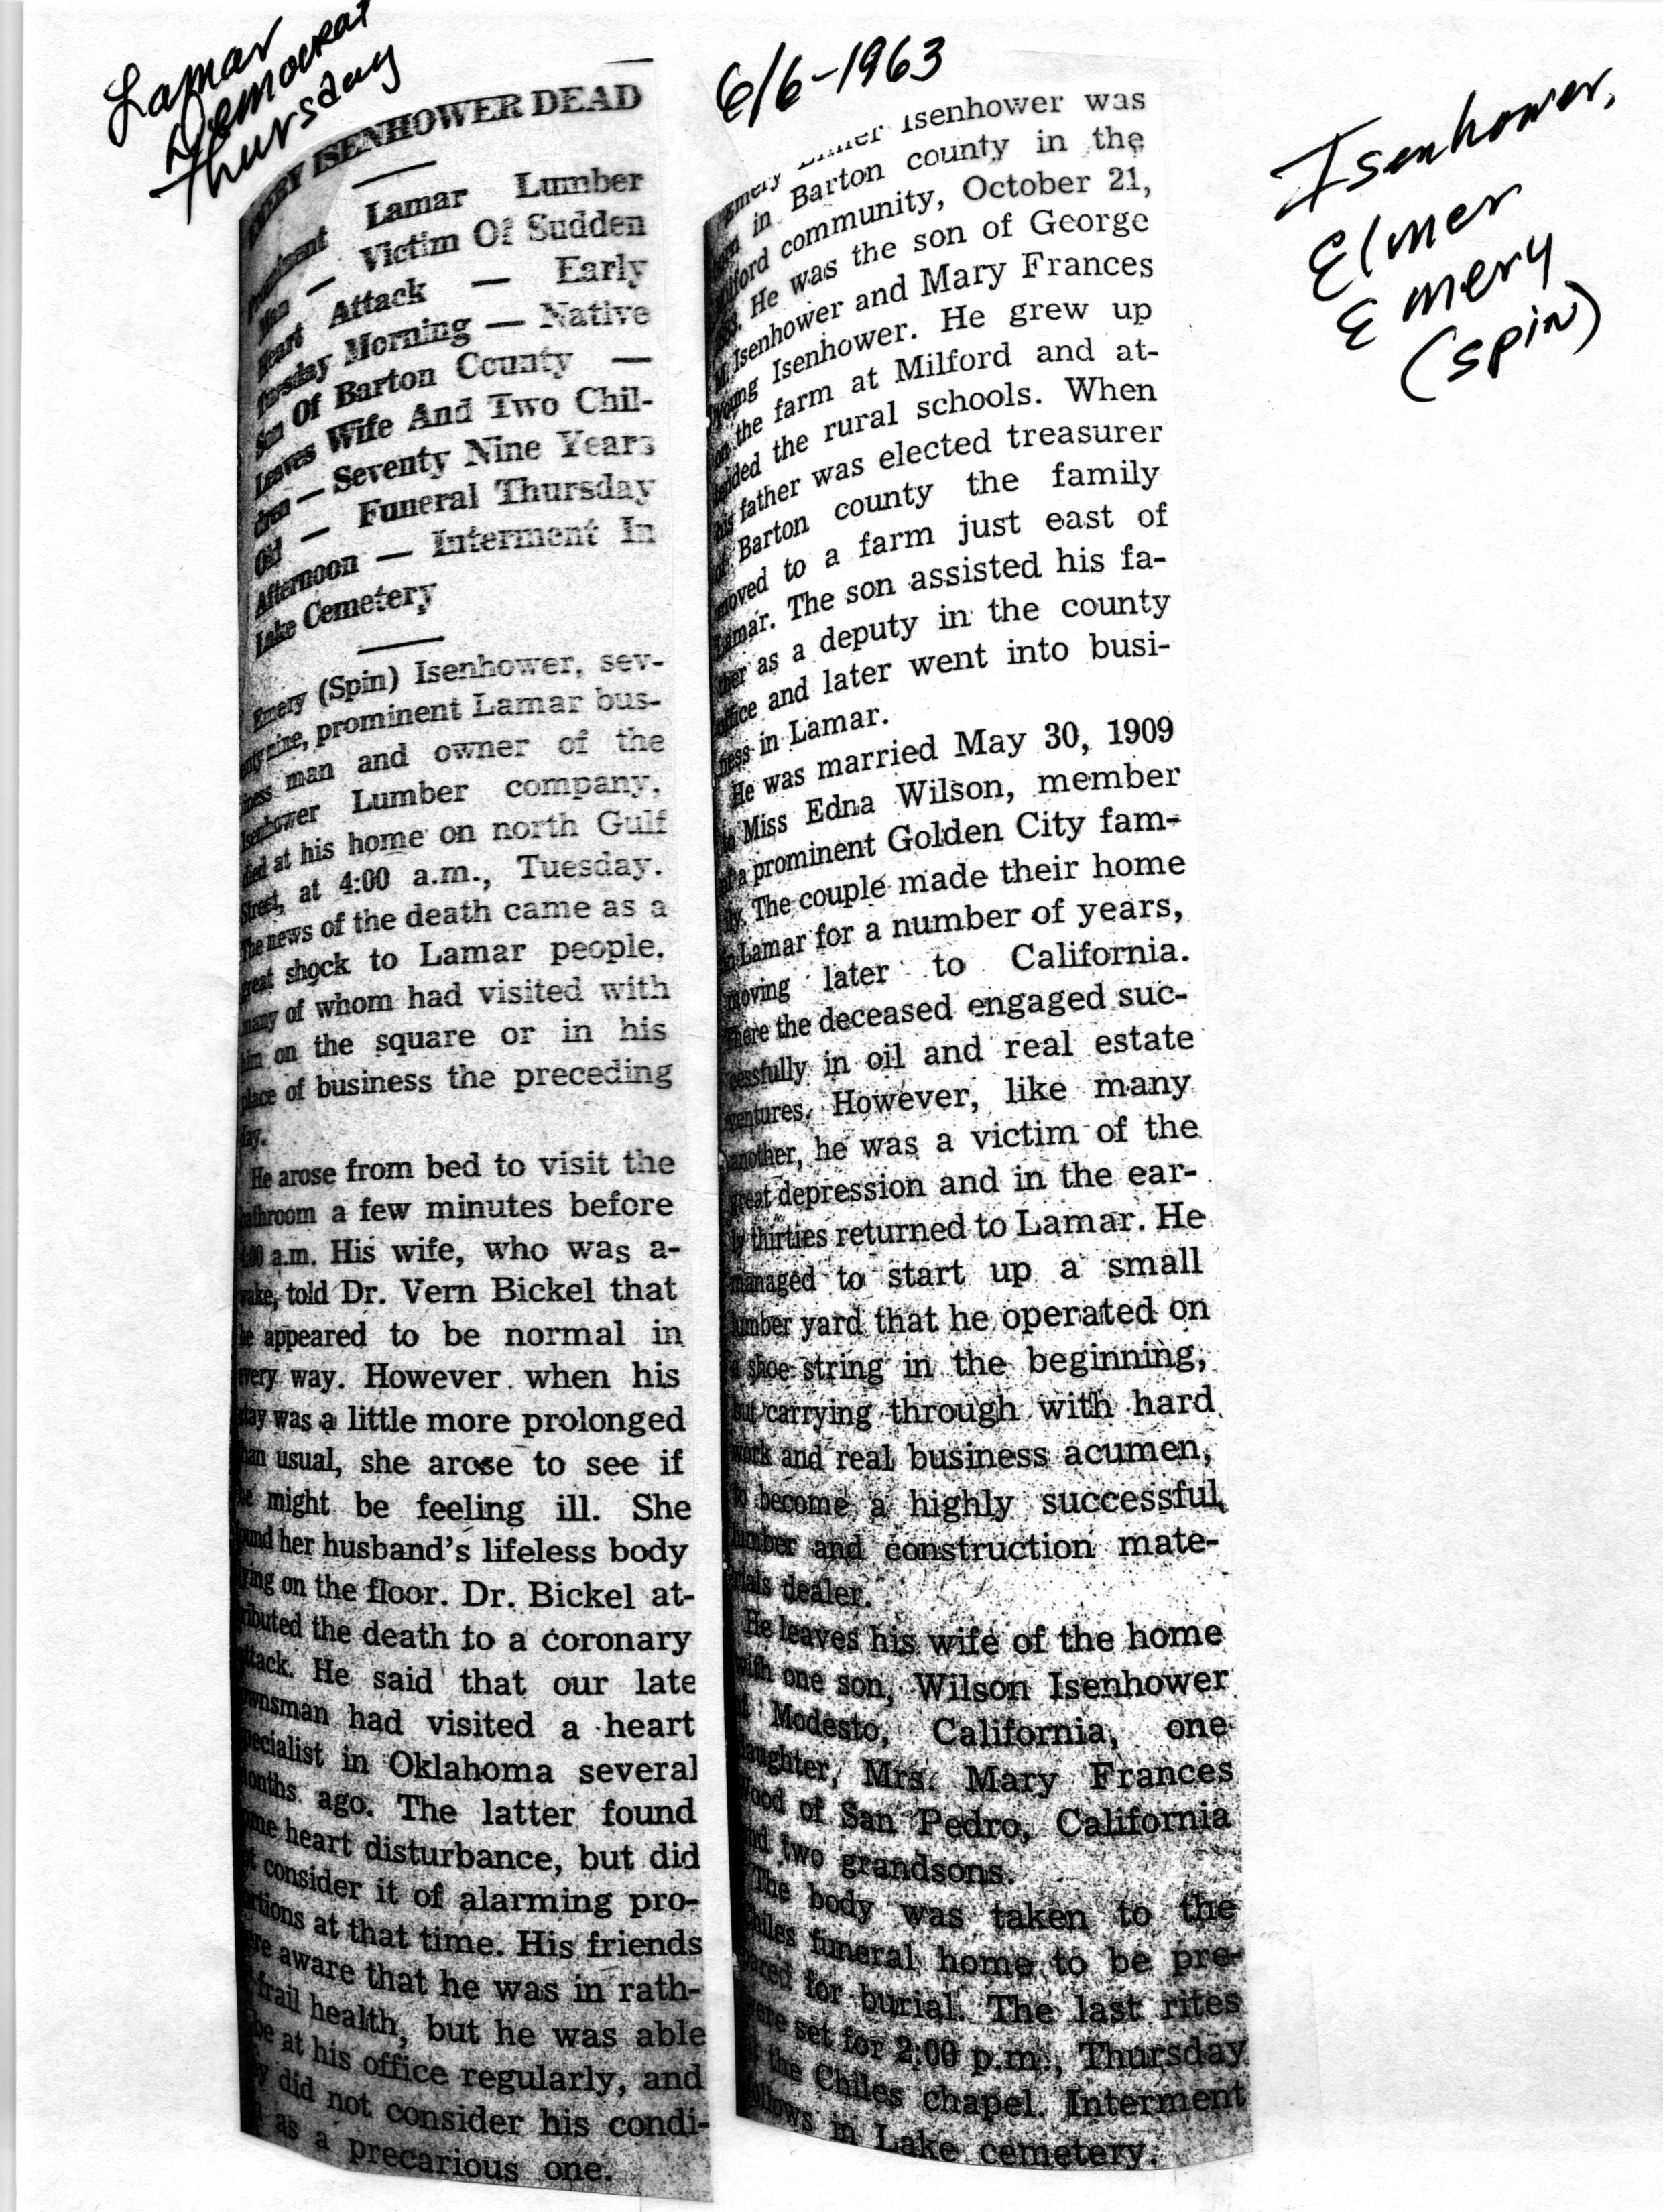 Lamar
Democrat
Thursday
6/6-1963
Isenhower,
Elmer
Emery
(Spin)
EMERY ISENHOWER DEAD
Prominent Lamar Lumber
Man — Victim Of Sudden
Heart Attack — Early
Tuesday Morning — Native
Son Of Barton County —
Leaves Wife And Two Chil-
dren — Seventy Nine Years
Old — Funeral Thursday
Afternoon — Interment In
Lake Cemetery
Emery (Spin) Isenhower, sev-
enty nine, prominent Lamar bus-
iness man and owner of the
Isenhower Lumber company,
died at his home on north Gulf
Street, at 4:00 a.m., Tuesday.
The news of the death came as a
great shock to Lamar people,
many of whom had visited with
him on the square or in his
place of business the preceding
day.
He arose from bed to visit the
bathroom a few minutes before
4:00 a.m. His wife, who was a-
wake, told Dr. Vern Bickel that
he appeared to be normal in
every way. However when his
stay was a little more prolonged
than usual, she arose to see if
he might be feeling ill. She
found her husband's lifeless body
lying on the floor. Dr. Bickel at-
tributed the death to a coronary
attack. He said that our late
townsman had visited a heart
specialist in Oklahoma several
months ago. The latter found
some heart disturbance, but did
not consider it of alarming pro-
portions at that time. His friends
were aware that he was in rath-
frail health, but he was able
be at his office regularly, and
did not consider his condi-
as a precarious one.
Emery Elmer Isenhower was
born in Barton county in the
Milford community, October 21,
He was the son of George
M. Isenhower and Mary Frances
Young Isenhower. He grew up
on the farm at Milford and at-
tended the rural schools. When
his father was elected treasurer
of Barton county the family
moved to a farm just east of
Lamar. The son assisted his fa-
ther as a deputy in the county
office and later went into busi-
ness in Lamar.
He was married May 30, 1909
to Miss Edna Wilson, member
of a prominent Golden City fam-
ily. The couple made their home
in Lamar for a number of years,
moving later to California.
There the deceased engaged suc-
cessfully in oil and real estate
ventures. However, like many
another, he was a victim of the
great depression and in the ear-
ly thirties returned to Lamar. He
managed to start up a small
lumber yard that he operated on
a shoe string in the beginning,
but carrying through with hard
work and real business acumen,
to become a highly successful
lumber and construction mate-
rials dealer.
He leaves his wife of the home
with one son, Wilson Isenhower
of Modesto, California, one
daughter, Mrs. Mary Frances
Wood of San Pedro, California
and two grandsons.
The body was taken to the
Chiles funeral home to be pre-
pared for burial. The last rites
were set for 2:00 p.m., Thursday
at the Chiles chapel. Interment
follows in Lake cemetery.